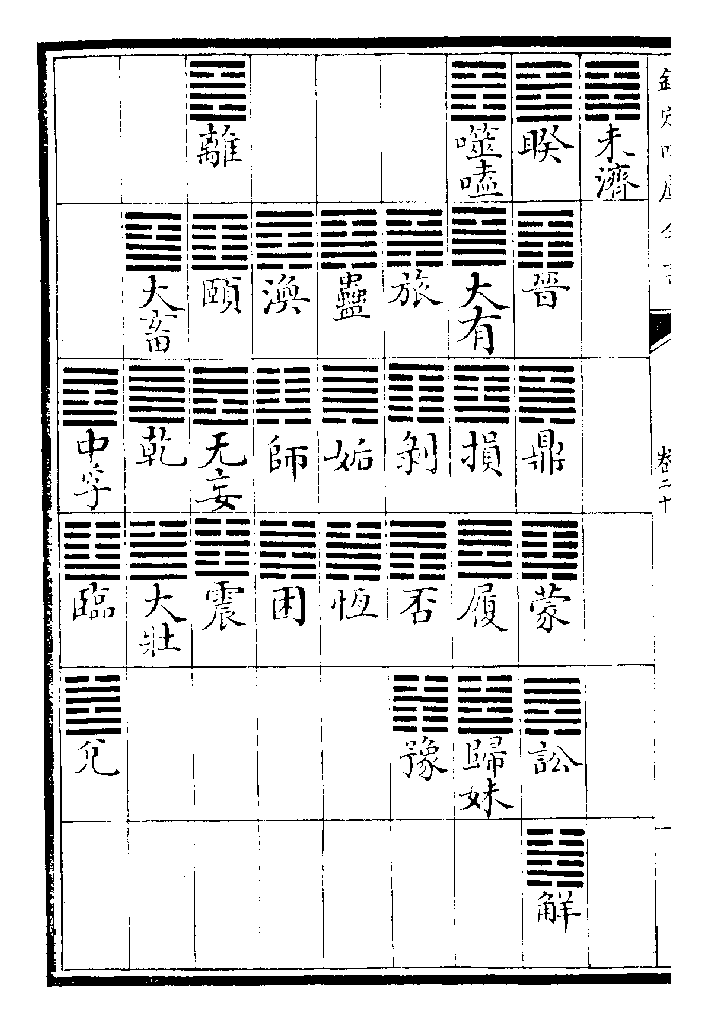 欽定四庫全書
卷二十
未濟
睽 晉 鼎 蒙 訟 解
噬嗑 大有 損 履 歸妹
旅 剝 否 豫
蠱 姤 恆
渙 師 困
離 頤 无妄 震
大畜 乾 大壯
中孚 臨 兌